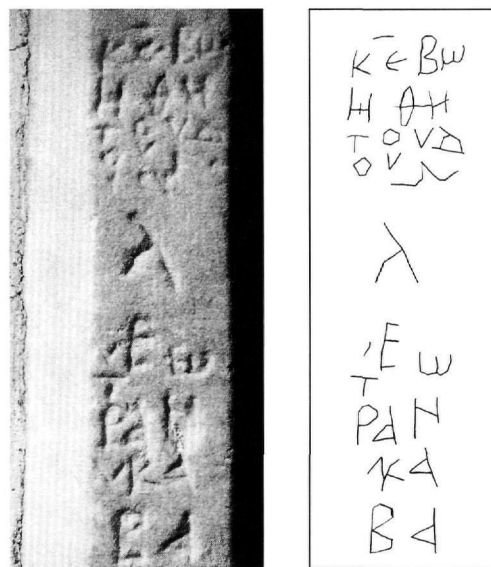 Κ̅Ε̅ Βω
ΗΘΗ
ΤΟΥΔ
ΟΥΛ
λ
Ε ω
Τ
ΡΑΝ
ΚΑ
ΒΑ